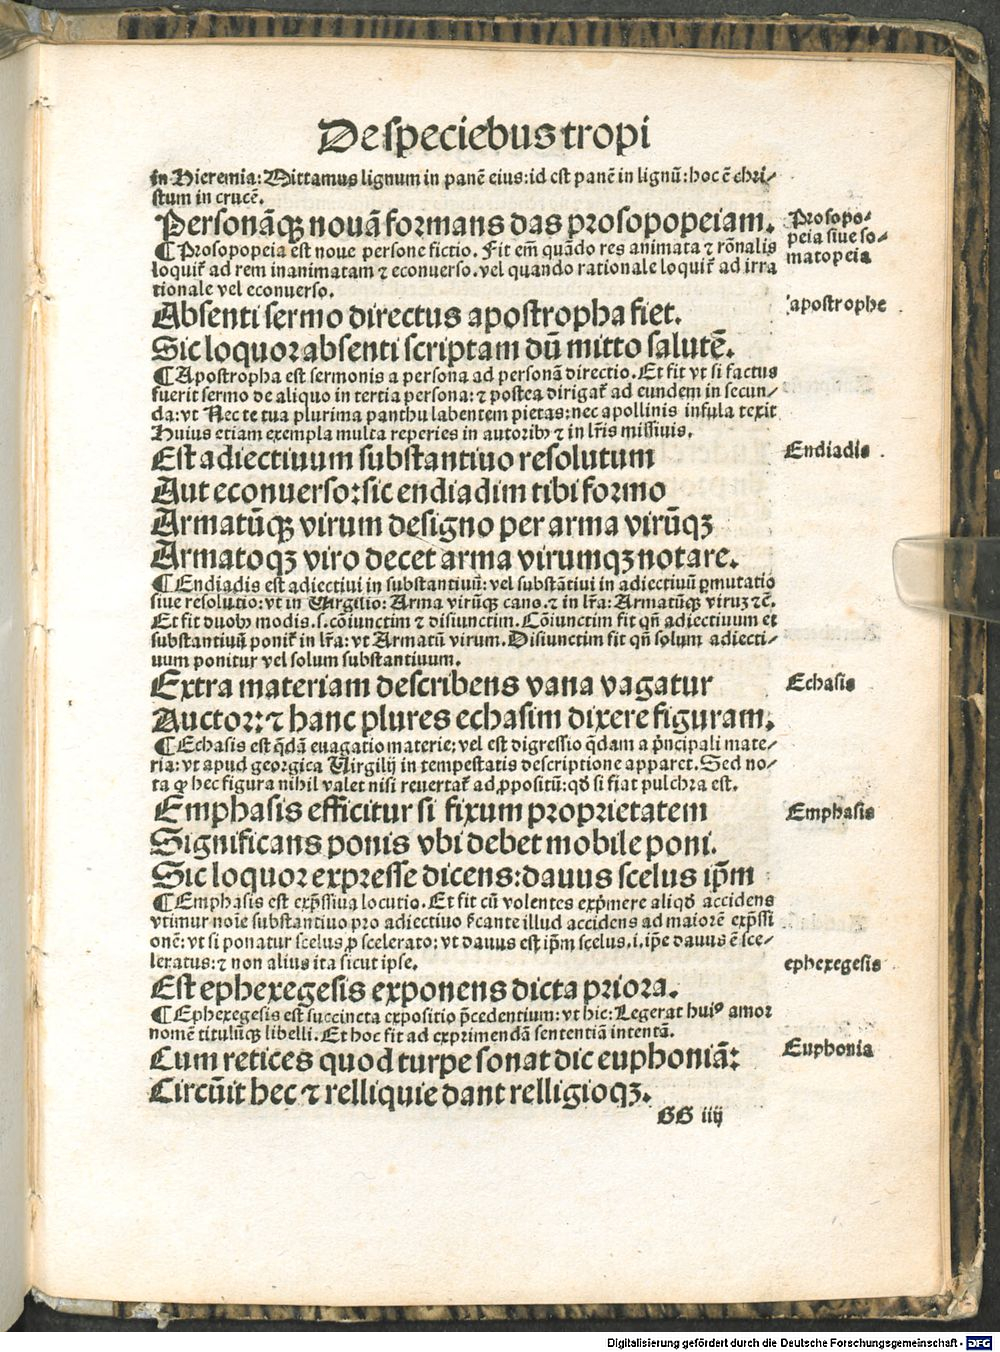 De speciebus tropi
in Hieremia: Mittamus lignum in panē eius: id est panē in lignū: hoc ē chri-
stum in crucē.
Personāqꝫ nouā formans das prosopopeiam.
Prosopo-
peia siue so-
matopeia
¶ Prosopopeia est noue persone fictio. Fit em̄ quādo res animata ⁊ rōnalis
loquit̄ ad rem inanimatam ⁊ econuerso. vel quando rationale loquit̄ ad irra
tionale vel econuerso.
Absenti sermo directus apostropha fiet.
apostrophe
Sic loquor absenti scriptam dū mitto salutē.
¶ Apostropha est sermonis a persona ad personā directio. Et fit vt si factus
fuerit sermo de aliquo in tertia persona: ⁊ postea dirigat̄ ad eundem in secun-
da: vt Nec te tua plurima panthu labentem pietas: nec apollinis infula texit
Huius etiam exempla multa reperies in autoribꝰ ⁊ in lr̄is missiuis.
Est adiectiuum substantiuo resolutum
Endiadis
Aut econuerso: sic endiadim tibi formo
Armatūqꝫ virum designo per arma virūqꝫ
Armatoqꝫ viro decet arma virumqꝫ notare.
¶ Endiadis est adiectiui in substantiuū: vel substātiui in adiectiuū ꝑmutatio
siue resolutio: vt in Virgilio: Arma virūqꝫ cano. ⁊ in lr̄a: Armatūqꝫ viruꝫ ⁊c̄.
Et fit duobꝰ modis. s. cōiunctim ⁊ disiunctim. Cōiunctim fit qn̄ adiectiuum et
substantiuū ponit̄ in lr̄a: vt Armatū virum. Disiunctim fit qn̄ solum adiecti-
uum ponitur vel solum substantiuum.
Extra materiam describens vana vagatur
Echasis
Auctor: ⁊ hanc plures echasim dixere figuram.
¶ Echasis est q̄dā euagatio materie: vel est digressio q̄dam a p̄ncipali mate-
ria: vt apud georgica Virgilij in tempestatis descriptione apparet. Sed no-
ta ꝙ hec figura nihil valet nisi reuertat̄ ad ꝓpositū: qd̄ si fiat pulchra est.
Emphasis efficitur si fixum proprietatem
Emphasis
Significans ponis vbi debet mobile poni.
Sic loquor expresse dicens: dauus scelus ip̄m
¶ Emphasis est exp̄ssiua locutio. Et fit cū volentes exp̄mere aliqd̄ accidens
vtimur noīe substantiuo pro adiectiuo p̄cante illud accidens ad maiorē exp̄ssi
onē: vt si ponatur scelus ꝓ scelerato: vt dauus est ip̄m scelus. i. ip̄e dauus ē sce-
leratus: ⁊ non alius ita sicut ipse.
ephexegesis
Est ephexegesis exponens dicta priora.
¶ Ephexegesis est succincta expositio p̄cedentium: vt hic: Legerat huiꝰ amor
nomē titulūqꝫ libelli. Et hoc fit ad exprimendā sententiā intentā.
Cum retices quod turpe sonat dic euphoniā:
Euphonia
Circūit hec ⁊ relliquie dant relligioqꝫ.
GG iiij
Digitalisierung gefördert durch die Deutsche Forschungsgemeinschaft - DFG